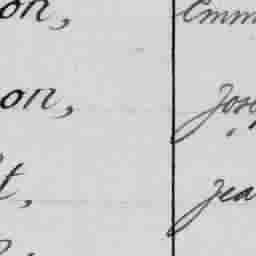 on, Emm
on, Jose
t, Jea